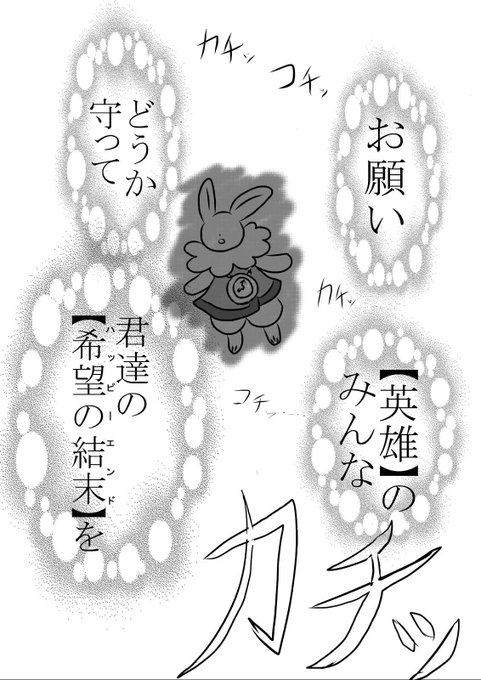 カチッ
コチッ
お願い
どうか
守って
カチッ
【英雄】の
みんな
コチッ
君達の
【希望の結末】を
ハッピーエンド
カチッ